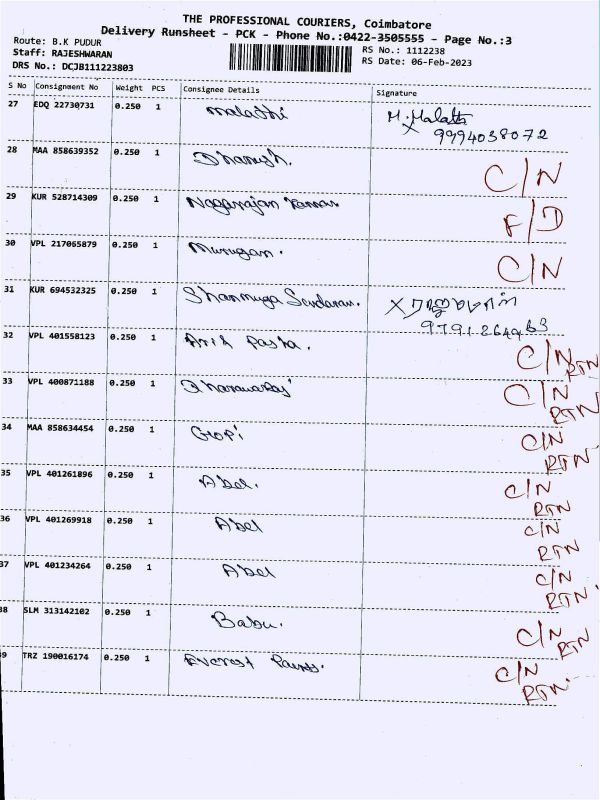 THE PROFESSIONAL COURIERS, Coimbatore
Delivery Runsheet - PCK - Phone No.:0422-3505555 - Page No.:3
Route: B.K PUDUR
Staff: RAJESHWARAN
DRS No.: DCJB111223803
RS No.: 1112238
RS Date: 06-Feb-2023
S No Consignment No Weight PCS Consignee Details Signature
27 EDQ 22730731 0.250 1 Malathi M. Malathi
X 9994038072
28 MAA 858639352 0.250 1 Dhanush. C/N
29 KUR 528714309 0.250 1 Nagarajan F/D
30 VPL 217065879 0.250 1 Murugan. C/N
31 KUR 694532325 0.250 1 Shanmuga Sundaram. X
32 VPL 401558123 0.250 1 Arif Pasha. C/N RTN
33 VPL 400871188 0.250 1 C/N
RTN
34 MAA 858634454 0.250 1 Gopi C/N
RTN
35 VPL 401261896 0.250 1 Abel. C/N
RTN
36 VPL 401269918 0.250 1 Abel C/N
RTN
37 VPL 401234264 0.250 1 Abel C/N
RTN.
38 SLM 313142102 0.250 1 Babu. C/N
RTN
39 TRZ 190016174 0.250 1 Everest C/N
RTN.